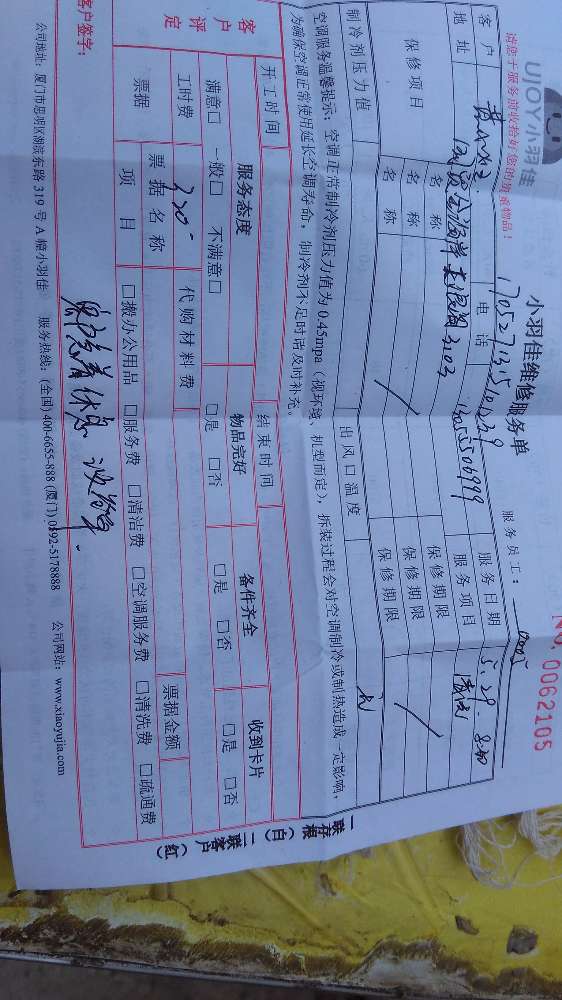 UJOY小羽佳
小羽佳维修服务单
NO. 0062105
请您于服务前收拾好您的贵重物品！
服务员工：
客户
电话
服务日期 5.29. 8:30
地址
3102
服务项目
保修项目
名称
保修期限
名称
保修期限
名称
保修期限
制冷剂压力值
出风口温度
空调服务温馨提示：空调正常制冷剂压力值为0.45mpa（视环境、机型而定），拆装过程会对空调制冷或制热造成一定影响，
为确保空调正常使用延长空调寿命，制冷剂不足时请及时补充。
开工时间
结束时间
客户评定
服务态度
物品完好
备件齐全
收到卡片
满意□ 一般□ 不满意□
□是 □否
□是 □否
□是 □否
工时费
代购材料费
票据金额
票据
票据名称
项目
□搬办公用品 □服务费 □清洁费 □空调服务费 □清洗费 □疏通费
客户签字：
公司地址：厦门市思明区湖滨东路319号A幢小羽佳 服务热线：(全国)400-6655-888 (厦门)0592-5178888 公司网站：www.xiaoyujia.com
一联存根（白）二联客户（红）